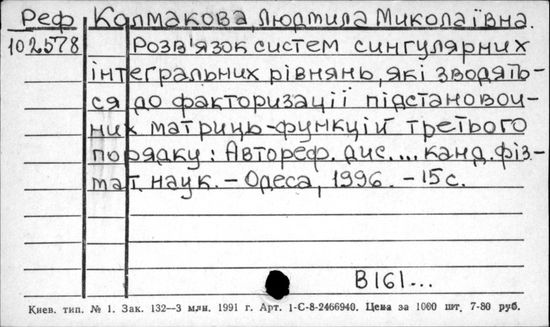 Реф Колмакова, Людмила Миколаївна.
102578 Розв'язок систем сингулярних
інтегральних рівнянь, які зводять-
ся до факторизації підстановоч-
них матриць-функцій третього
порядку: Автореф. дис. ... канд. фіз.-
мат. наук. – Одеса, 1996. – 15 с.
В161...
Киев. тип. № 1. Зак. 132—3 млн. 1991 г. Арт. 1-С-8-2466940. Цена за 1000 шт. 7-80 руб.